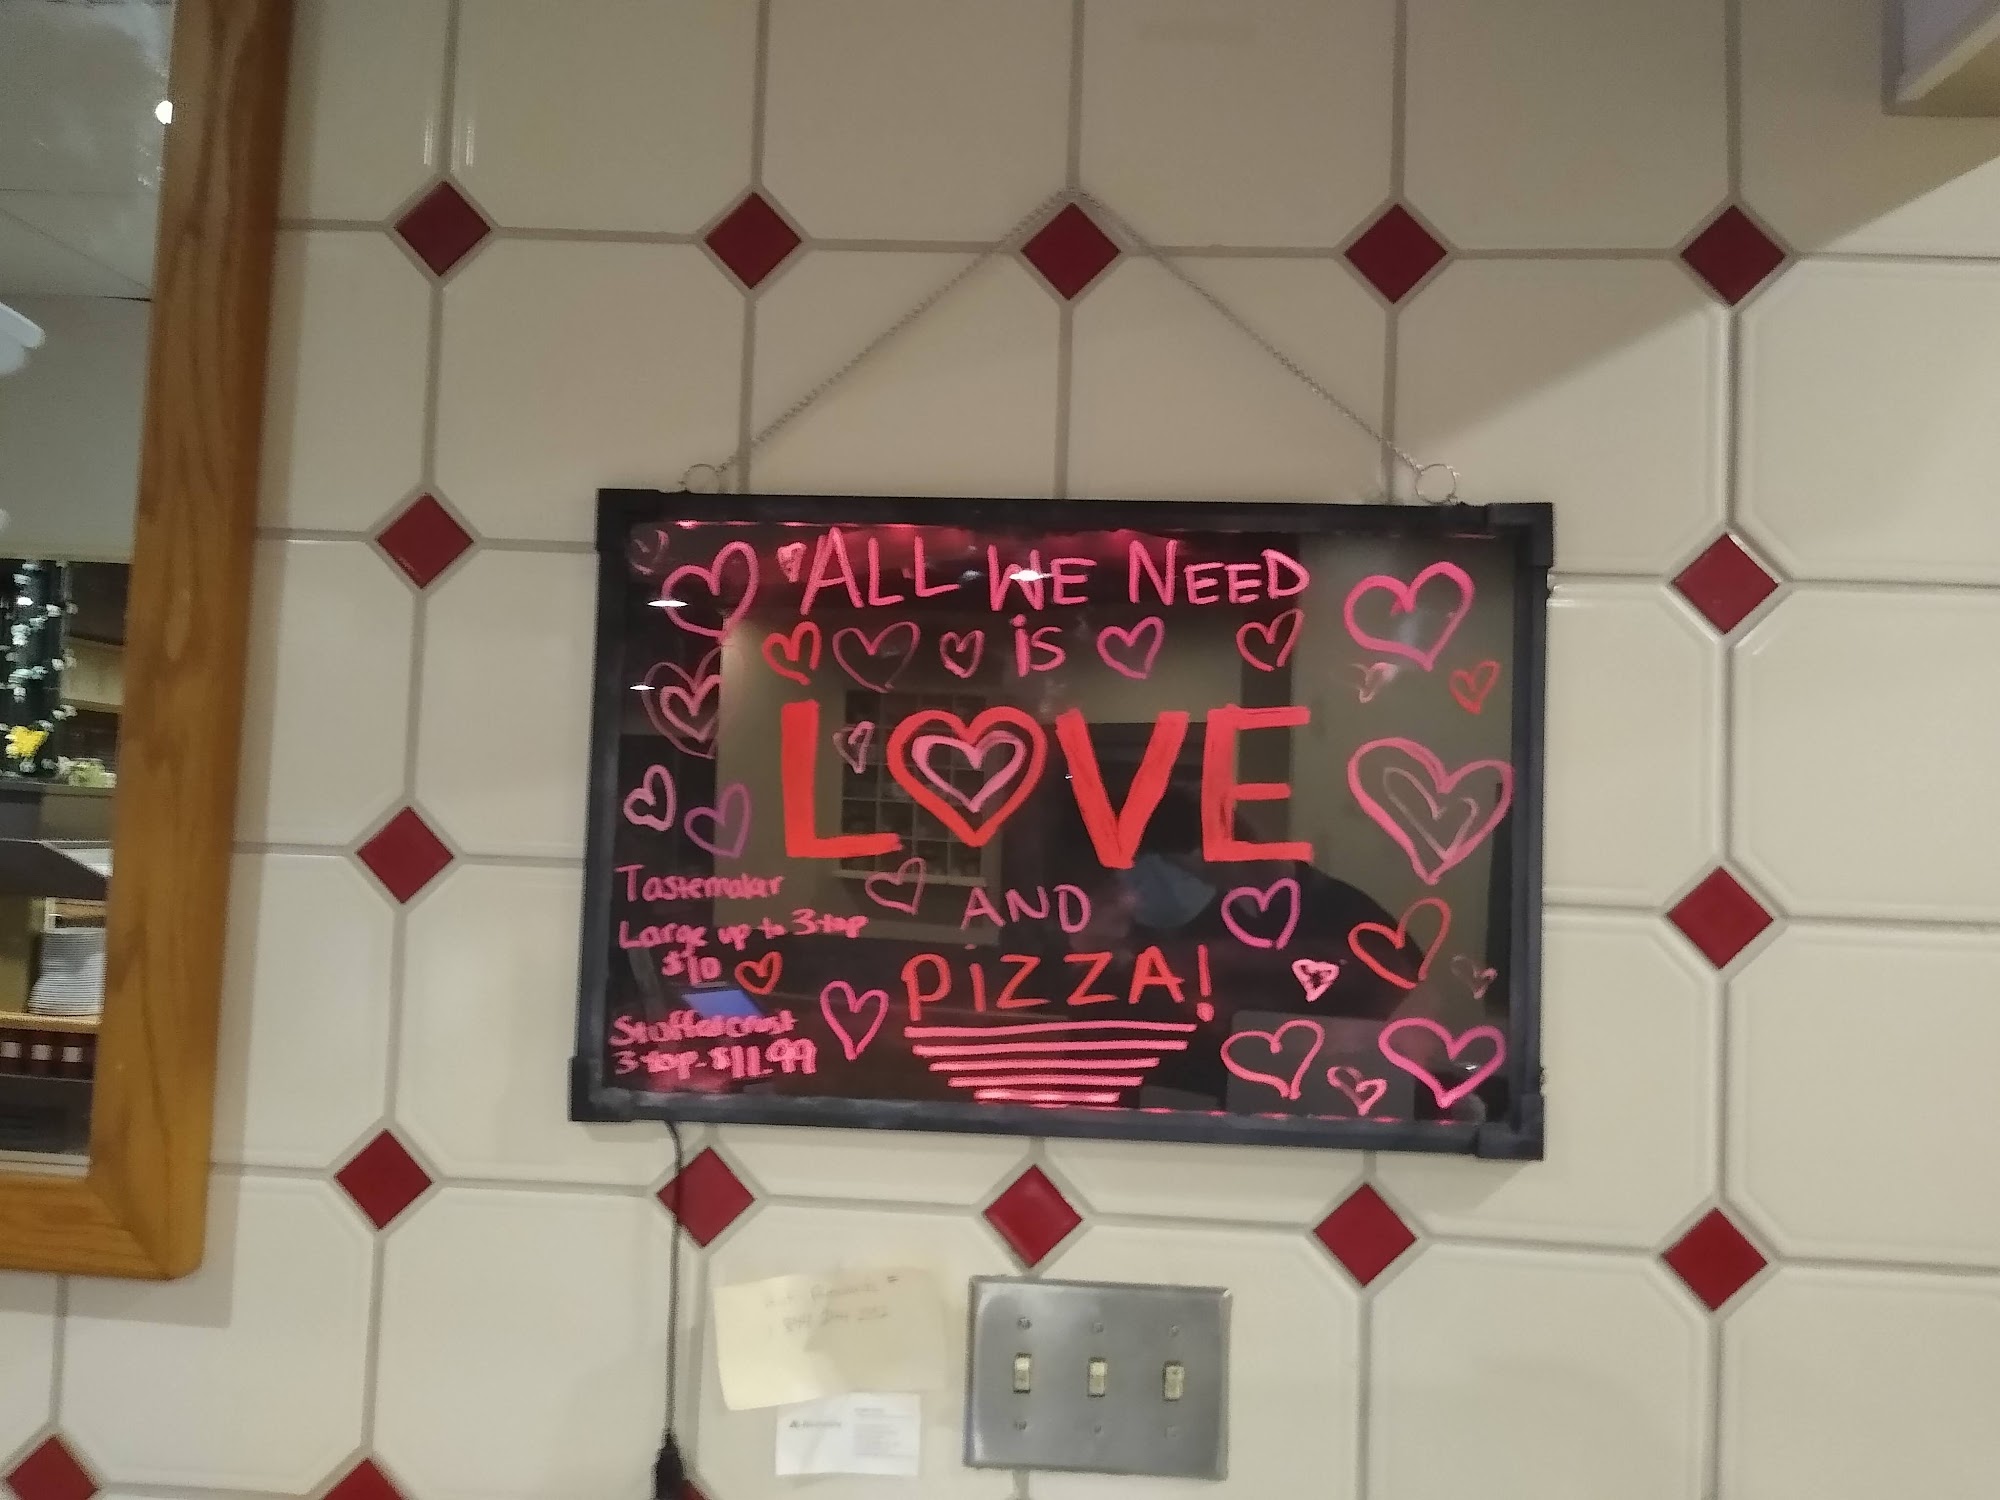 ALL WE NEED
is
LOVE
AND
PiZZA!
Tastemaker
Large up to 3-top
$10
Stuffed crust
3-top-$11.99